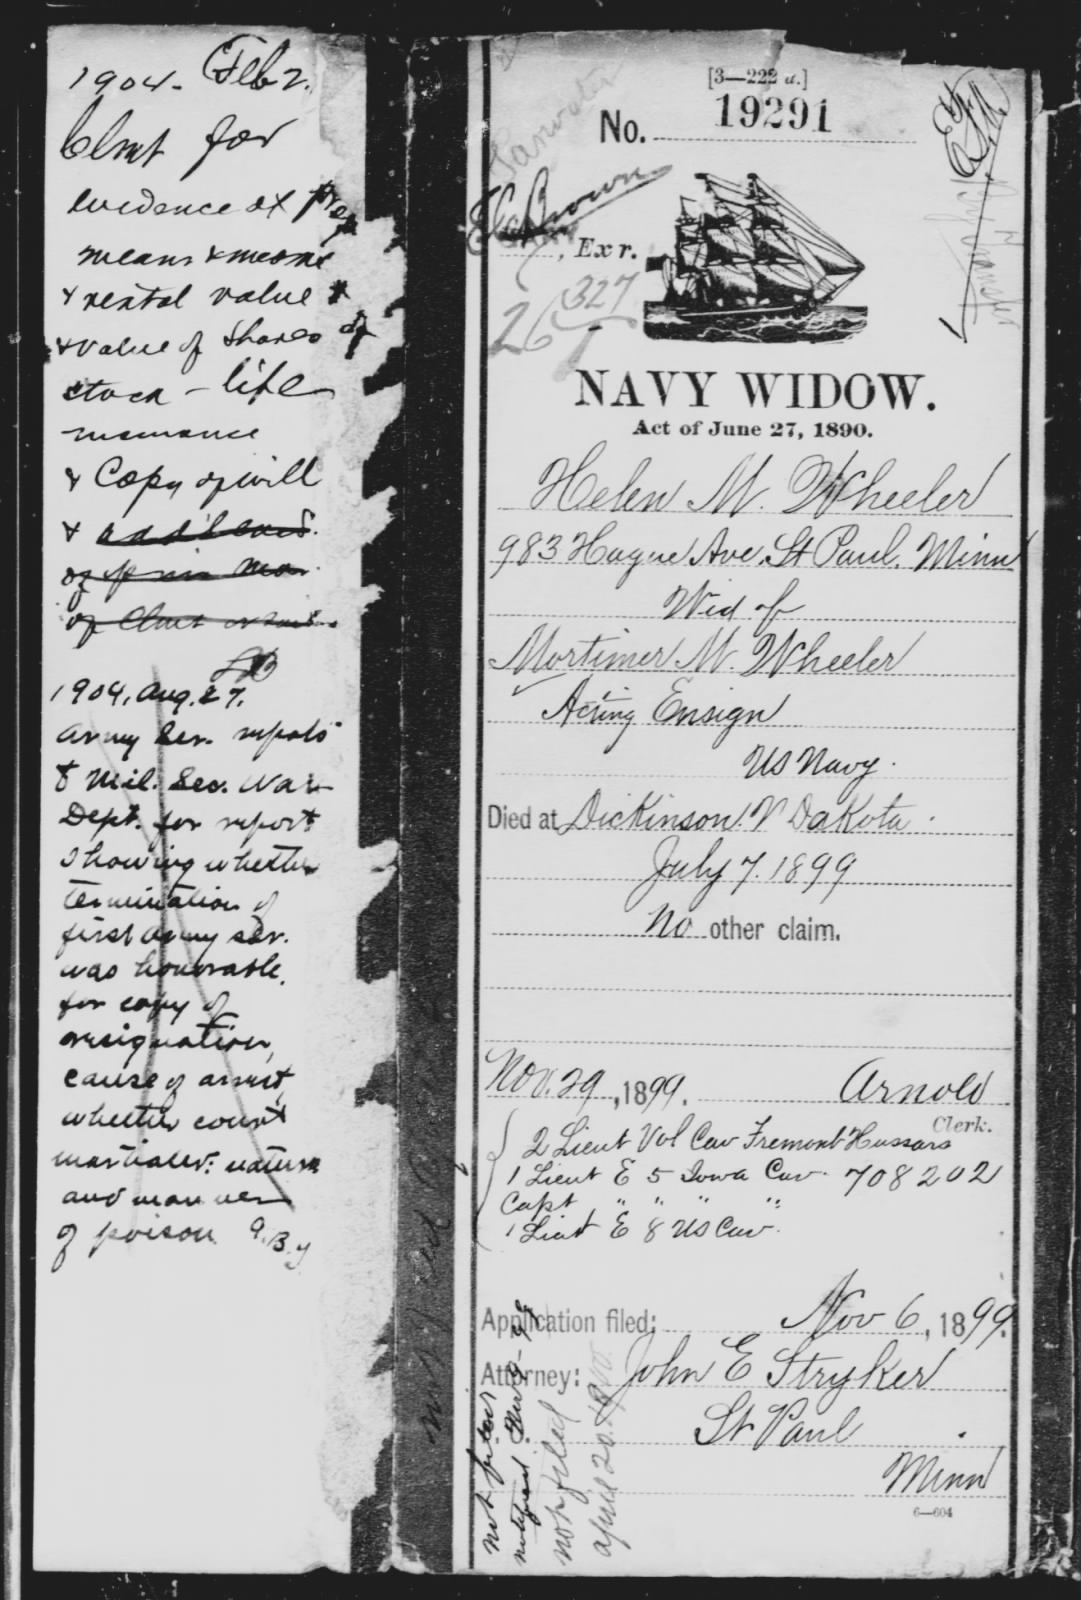 1904. Feb 2.
Clmt for
evidence of
means & income
& rental value
& value of shares of
stock - life
insurance
& Copy of will
&
of Clmt
1904. Aug. 27.
Army Ser. reports
to Mil. Sec. War
Dept. for report
showing whether
termination of
first army ser.
was honorable,
for copy of
resignation,
cause of arrest,
whether court
martialed: nature
and manner
of poison
[3—222 a.]
No. 19291
Brown
, Exr.
327
26
NAVY WIDOW.
Act of June 27, 1890.
Helen M. Wheeler
983 Hague Ave. St Paul. Minn
Wid of
Mortimer M. Wheeler
Acting Ensign
US Navy.
Died at Dickinson. N Dakota.
July 7. 1899
No other claim.
Nov. 29, 1899. Arnold
Clerk.
2 Lieut Vol Cav Fremont Hussars
1 Lieut E 5 Iowa Cav. 708202
Capt " " " "
1 Lieut E 8 US Cav.
Application filed: Nov 6, 1899.
Attorney: John E Stryker
St Paul
Minn
6—604
not filed
not filed
April 20.